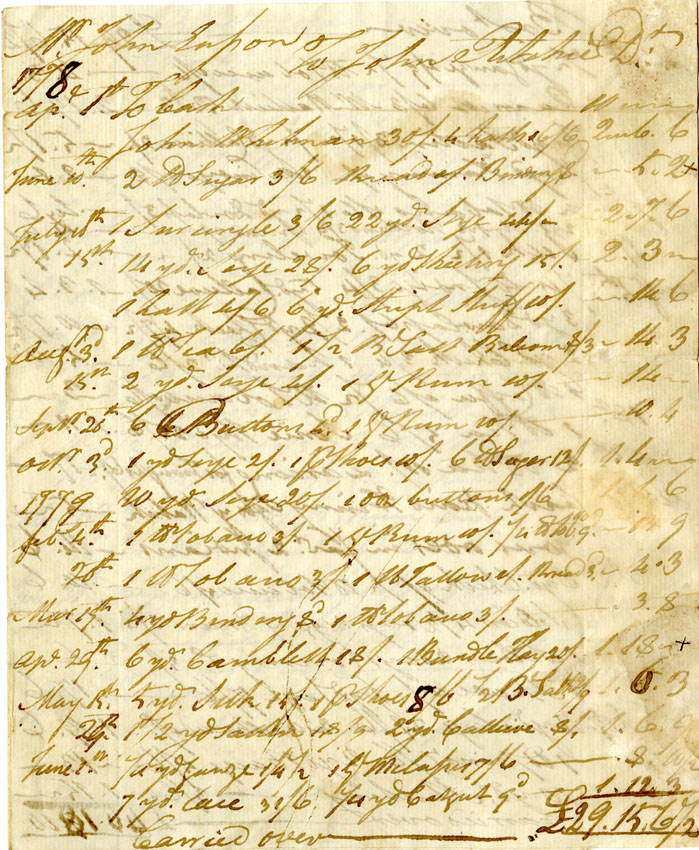 Mr. John To John Ritchie Dr.
1778
Apr. 1st To Cash
John Whitman 30/. 4 6/6 2 6. 6
June 10th 2 lb Sugar 3/6 thread Binding 5. 2
July 10th 1 Surcingle 3/6 22 yd. Serje 44/ 2. 7. 6
15th 14 yd. Serje 28/. 6 yd Sheeting 15/. 2. 3
1 4/6 6 yd. Stript Stuff 10/. 14. 6
Augt. 3d. 1 lb Tea 6/. 1/2 B Salt 14. 3
15th 2 yd. Serje 4/. 1 g Rum 10/. 14
Sept. 26th 6 Buttons 1 g Rum 10/. 10. 4
Octr. 3d 1 yd Serje 2/. 1 p Shoes 10/. 6 lb Sugar 12/. 1. 4
1779 10 yd. Serje 20/. buttons 1/6 1. 1. 6
Feb. 4th. 1 lb Tobacco 3/. 1 g Rum 10/. 1/4 9d. 13 9
1 lb Tobacco 3/. 1 lb Tallow Thread 3d. 4. 3
Mar. 19th 4 yd Binding 8d. 1 lb Tobacco 3/. 3. 8
Apr. 29th. 6 yd. Camblett 18/. 1 Bundle Hay 20/. 1. 18
May 5 yd. Silk 15/. 1 p Shoes 8/6 1/2 B. Salt 6. 3
29th. 1 1/2 yd 18/9 2 yd. Callico 8/. 1. 6. 9
June 1st 1/4 yd Gauze 1/4 1/2 1 g Melases 7/6 8. 10 1/2
7 yd. Lace 31/6 1/4 yd 9d 1. 12. 3
Carried over £29. 15. 6 1/2